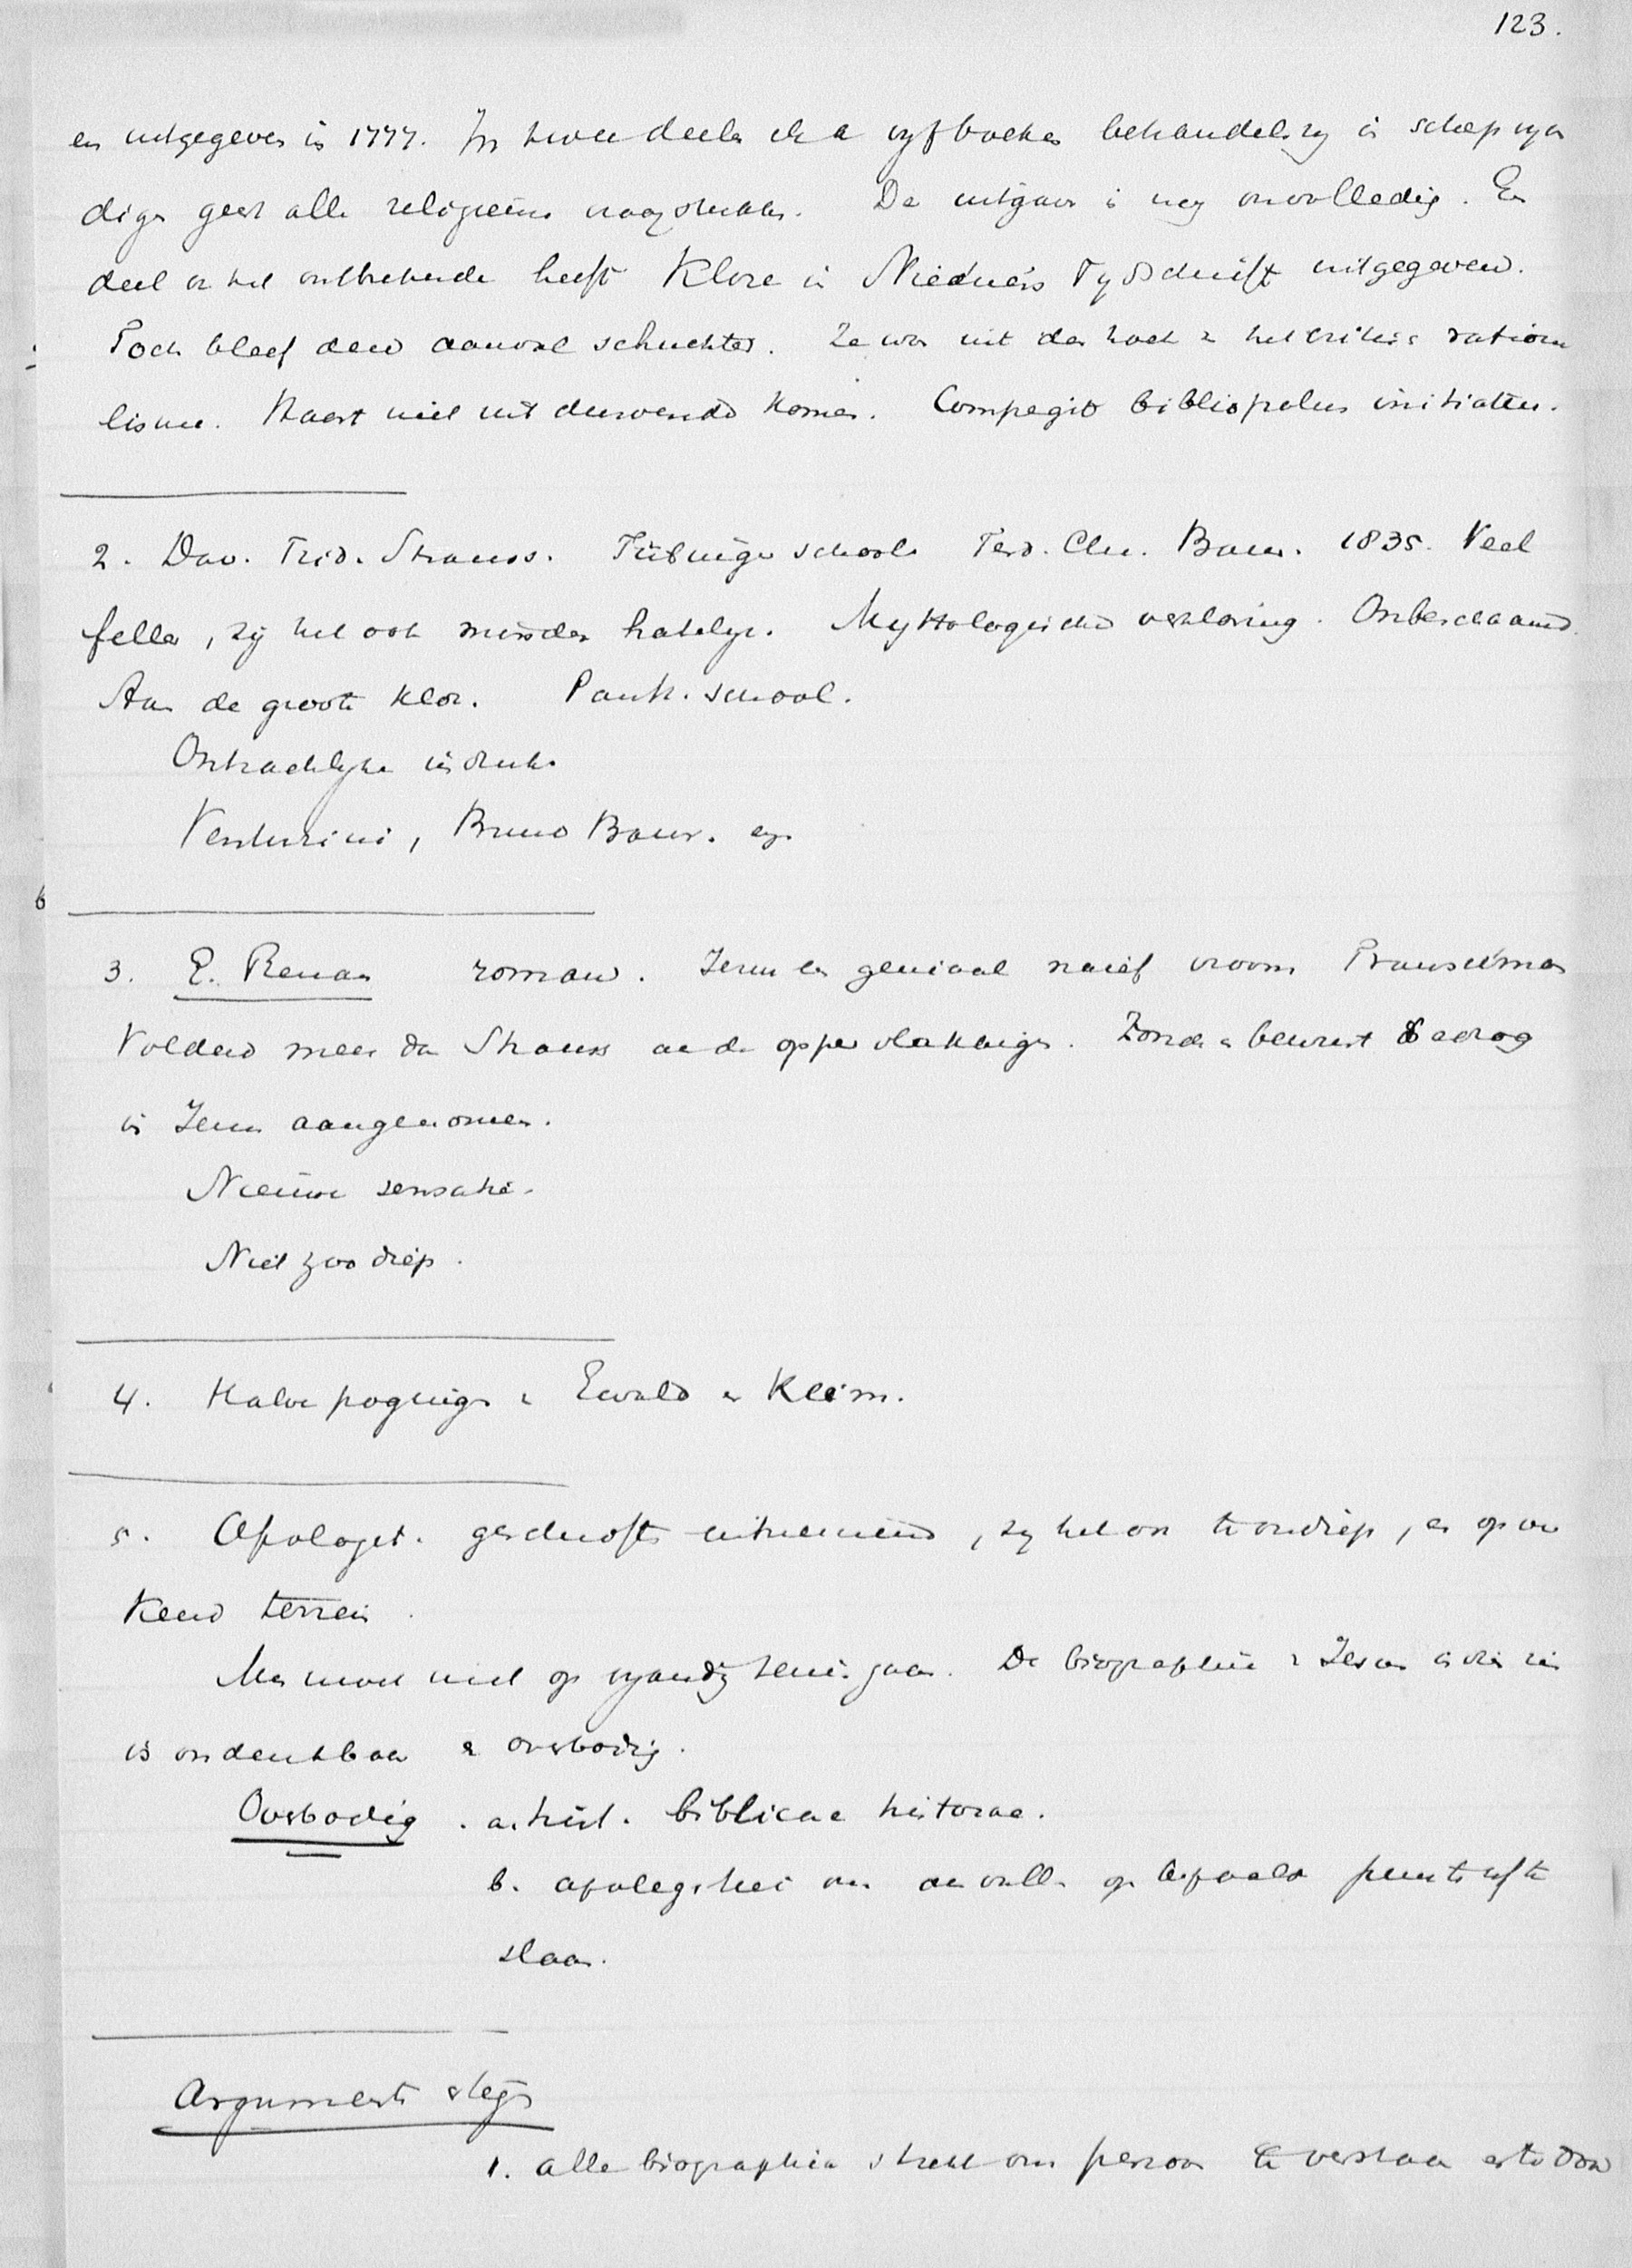 123.
en uitgegeven in 1777. In twee deelen elk a vijf boeken behandelt hij in
alle religieuse vraagstukken. De uitgave is nog onvolledig. Een
deel van het ontbrekende heeft Klose in Niedner's Tijdschrift uitgegeven.
Toch bleef deze aanval schuchter. Ze was uit den hoek v. het critische rationa
lisme. Haast niet uit komen. Compegit bibliopolus
2. Dav. Frid. Strauss. Tübinger school. Ferd. Chr. Baur. 1835. Veel
feller, zij het ook minder hatelijk. Mythologische verklaring. Onbeschaamd.
Aan de groote klok. Panth. school.
Ontzachlijke indruk.
Venturini, Bruno Baur.
3. E. Renan roman. Jezus een geniaal naief vroom
Voldeed meer dan Strauss aan de oppervlakkigen. Zonde en bewust bedrog
in Jezus aangenomen.
Nieuwe sensatie.
Niet zoo diep.
4. Halve pogingen v. Ewald en Keim.
5. Apologet. geschrift uitnemend, zij het ook te ondiep, en op ver
keerd terrein.
Men moet niet op vijandig terrein gaan. De biographie v. Jezus in die zin
is ondenkbaar en overbodig.
Overbodig. a. hist. biblicae historiae.
b. apologetici om aanvallen op bepaalde punten af te
slaan.
Argumenten tegen
1. alle biographien strekt om persoon te verstaan en te doen